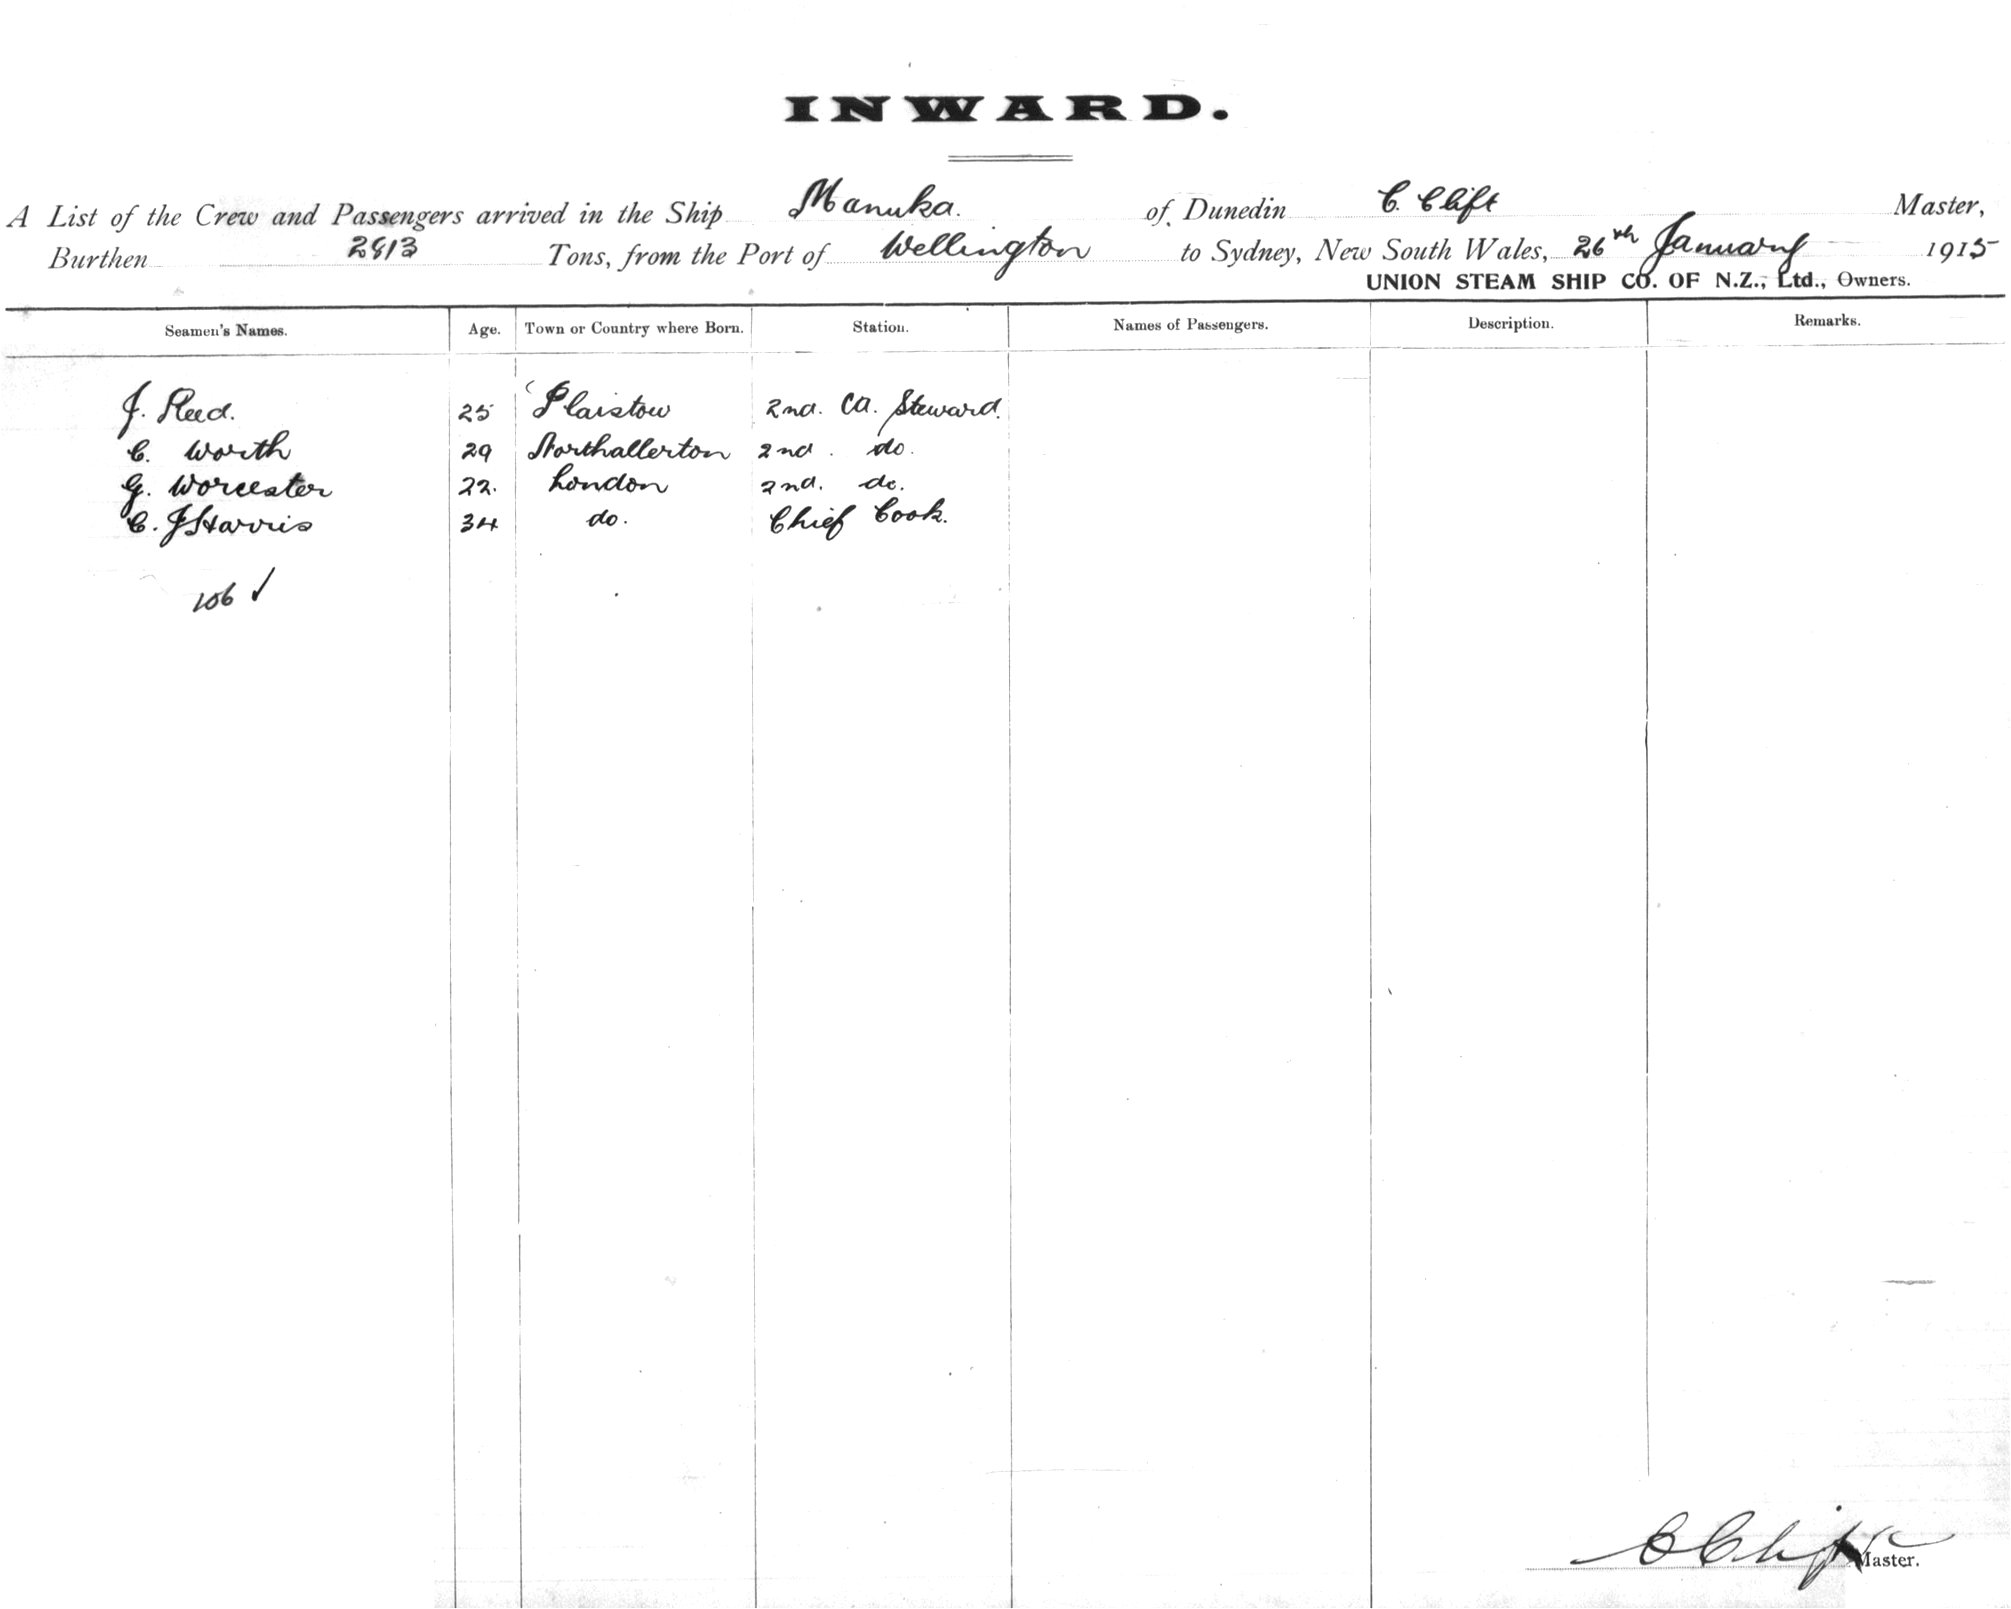 INWARD.
A List of the Crew and Passengers arrived in the Ship Manuka. of Dunedin C. Clift Master,
Burthen 2813 Tons, from the Port of Wellington to Sydney, New South Wales, 26th January 1915
UNION STEAM SHIP CO. OF N.Z., Ltd., Owners.
Seamen's Names. Age. Town or Country where Born. Station. Names of Passengers. Description. Remarks.
J. Reed. 25 Plaistow 2nd. Cl. Steward.
C. Worth 29 Northallerton 2nd. do.
G. Worcester 22. London 2nd. do.
C. J Harris 34 do. Chief Cook.
106 ✓
C Clift Master.